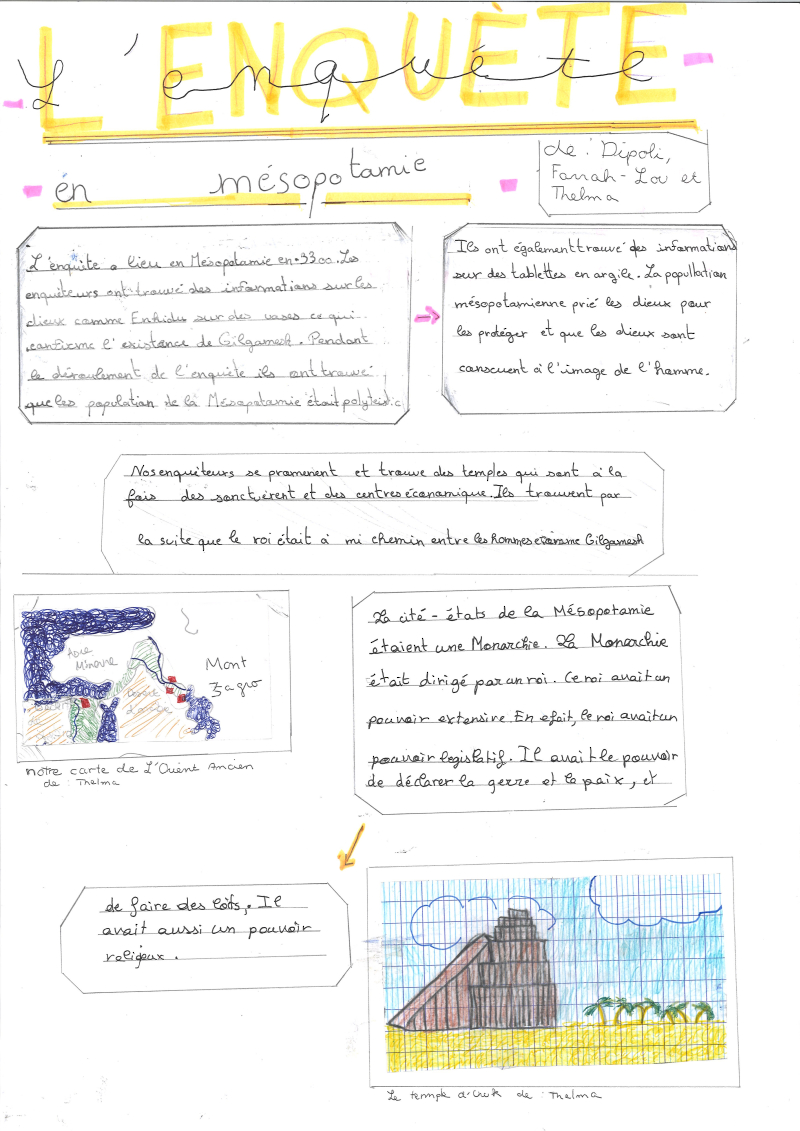 L'ENQUÈTE
L'enquéte
én mésopotamie
de : Dipoli,
Farrah-Lou et
Thelma
L'enquête a lieu en Mésopotamie en -3300. Les
enquêteurs ont trouvé des informations sur les
dieux comme Enkidu sur des vases ce qui
confirme l'existance de Gilgamesh. Pendant
le déroulement de l'enquête ils ont trouvé
que les population de la Mésopotamie était polyteistic
Ils ont également trouvé des informations
sur des tablettes en argile. La popullation
mésopotamienne prié les dieux pour
les protéger et que les dieux sont
conscuent à l'image de l'homme.
Nos enquiteurs se promenent et trouve des temples qui sont à la
fois des sanctuèrent et des centres économique. Ils trouvent par
la suite que le roi était à mi chemin entre les hommes comme Gilgamesh
Asie
Mineure
Mont
Zagro
notre carte de L'Orient Ancien
de : Thelma
La cité-états de la Mésopotamie
étaient une Monarchie. La Monarchie
était dirigé par un roi. Ce roi avait un
pouvoir extensive. En efait, le roi avait un
pouvoir legislatif. Il avait le pouvoir
de déclarer la gerre et la paix, et
de faire des loits,. Il
avait aussi un pouvoir
religeux.
Le temple d'Uruk de : Thelma